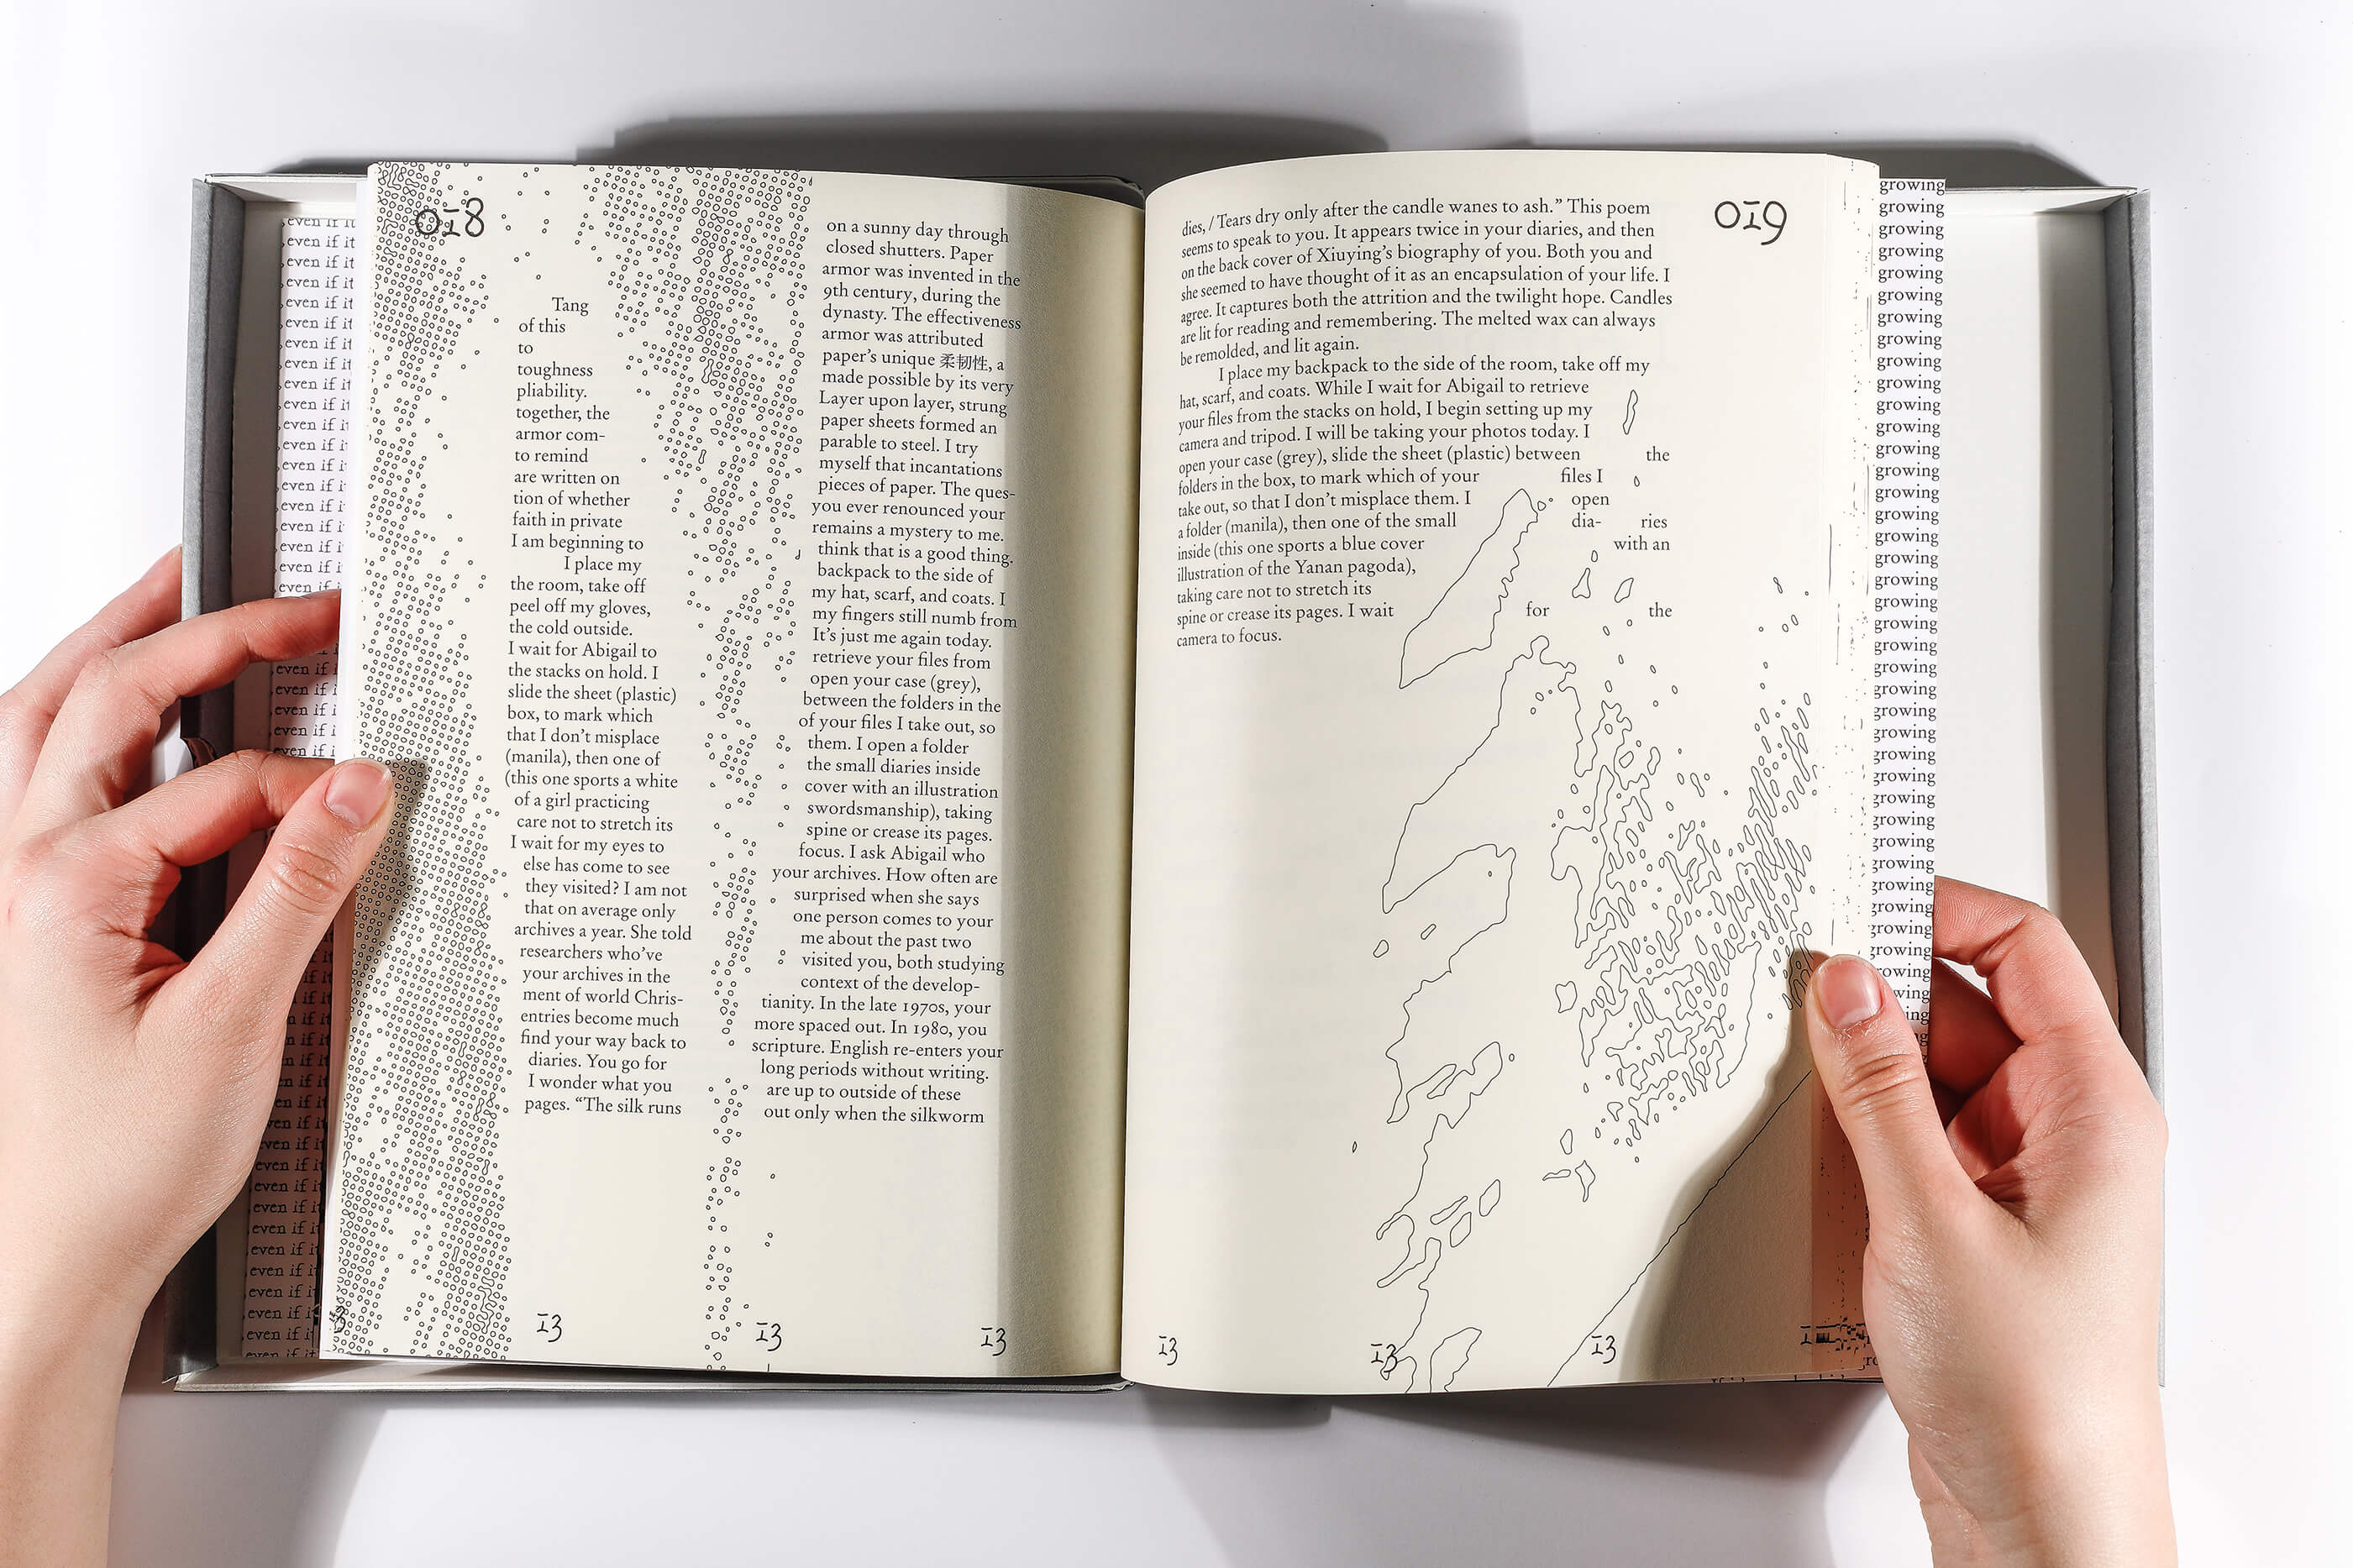 ,even if it
,even if it
,even if it
,even if it
,even if it
,even if it
,even if it
,even if it
,even if it
,even if it
,even if it
,even if it
,even if it
,even if it
,even if it
,even if it
,even if it
,even if it
,even if it
,even if it
,even if it
,even if it
,even if it
,even if it
,even if it
018
on a sunny day through
closed shutters. Paper
armor was invented in the
9th century, during the
Tang dynasty. The effectiveness
of this armor was attributed
to paper’s unique 柔韧性, a
toughness made possible by its very
pliability. Layer upon layer, strung
together, the paper sheets formed an
armor com- parable to steel. I try
to remind myself that incantations
are written on pieces of paper. The ques-
tion of whether you ever renounced your
faith in private remains a mystery to me.
I am beginning to think that is a good thing.
I place my backpack to the side of
the room, take off my hat, scarf, and coats. I
peel off my gloves, my fingers still numb from
the cold outside. It’s just me again today.
I wait for Abigail to retrieve your files from
the stacks on hold. I open your case (grey),
slide the sheet (plastic) between the folders in the
box, to mark which of your files I take out, so
that I don’t misplace them. I open a folder
(manila), then one of the small diaries inside
(this one sports a white cover with an illustration
of a girl practicing swordsmanship), taking
care not to stretch its spine or crease its pages.
I wait for my eyes to focus. I ask Abigail who
else has come to see your archives. How often are
they visited? I am not surprised when she says
that on average only one person comes to your
archives a year. She told me about the past two
researchers who’ve visited you, both studying
your archives in the context of the develop-
ment of world Chris- tianity. In the late 1970s, your
entries become much more spaced out. In 1980, you
find your way back to scripture. English re-enters your
diaries. You go for long periods without writing.
I wonder what you are up to outside of these
pages. “The silk runs out only when the silkworm
13 13 13
019
dies, / Tears dry only after the candle wanes to ash.” This poem
seems to speak to you. It appears twice in your diaries, and then
on the back cover of Xiuying’s biography of you. Both you and
she seemed to have thought of it as an encapsulation of your life. I
agree. It captures both the attrition and the twilight hope. Candles
are lit for reading and remembering. The melted wax can always
be remolded, and lit again.
I place my backpack to the side of the room, take off my
hat, scarf, and coats. While I wait for Abigail to retrieve
your files from the stacks on hold, I begin setting up my
camera and tripod. I will be taking your photos today. I
open your case (grey), slide the sheet (plastic) between the
folders in the box, to mark which of your files I
take out, so that I don’t misplace them. I open
a folder (manila), then one of the small dia- ries
inside (this one sports a blue cover with an
illustration of the Yanan pagoda),
taking care not to stretch its
spine or crease its pages. I wait for the
camera to focus.
13 13 13
growing
growing
growing
growing
growing
growing
growing
growing
growing
growing
growing
growing
growing
growing
growing
growing
growing
growing
growing
growing
growing
growing
growing
growing
growing
growing
growing
growing
growing
growing
growing
growing
growing
growing
growing
growing